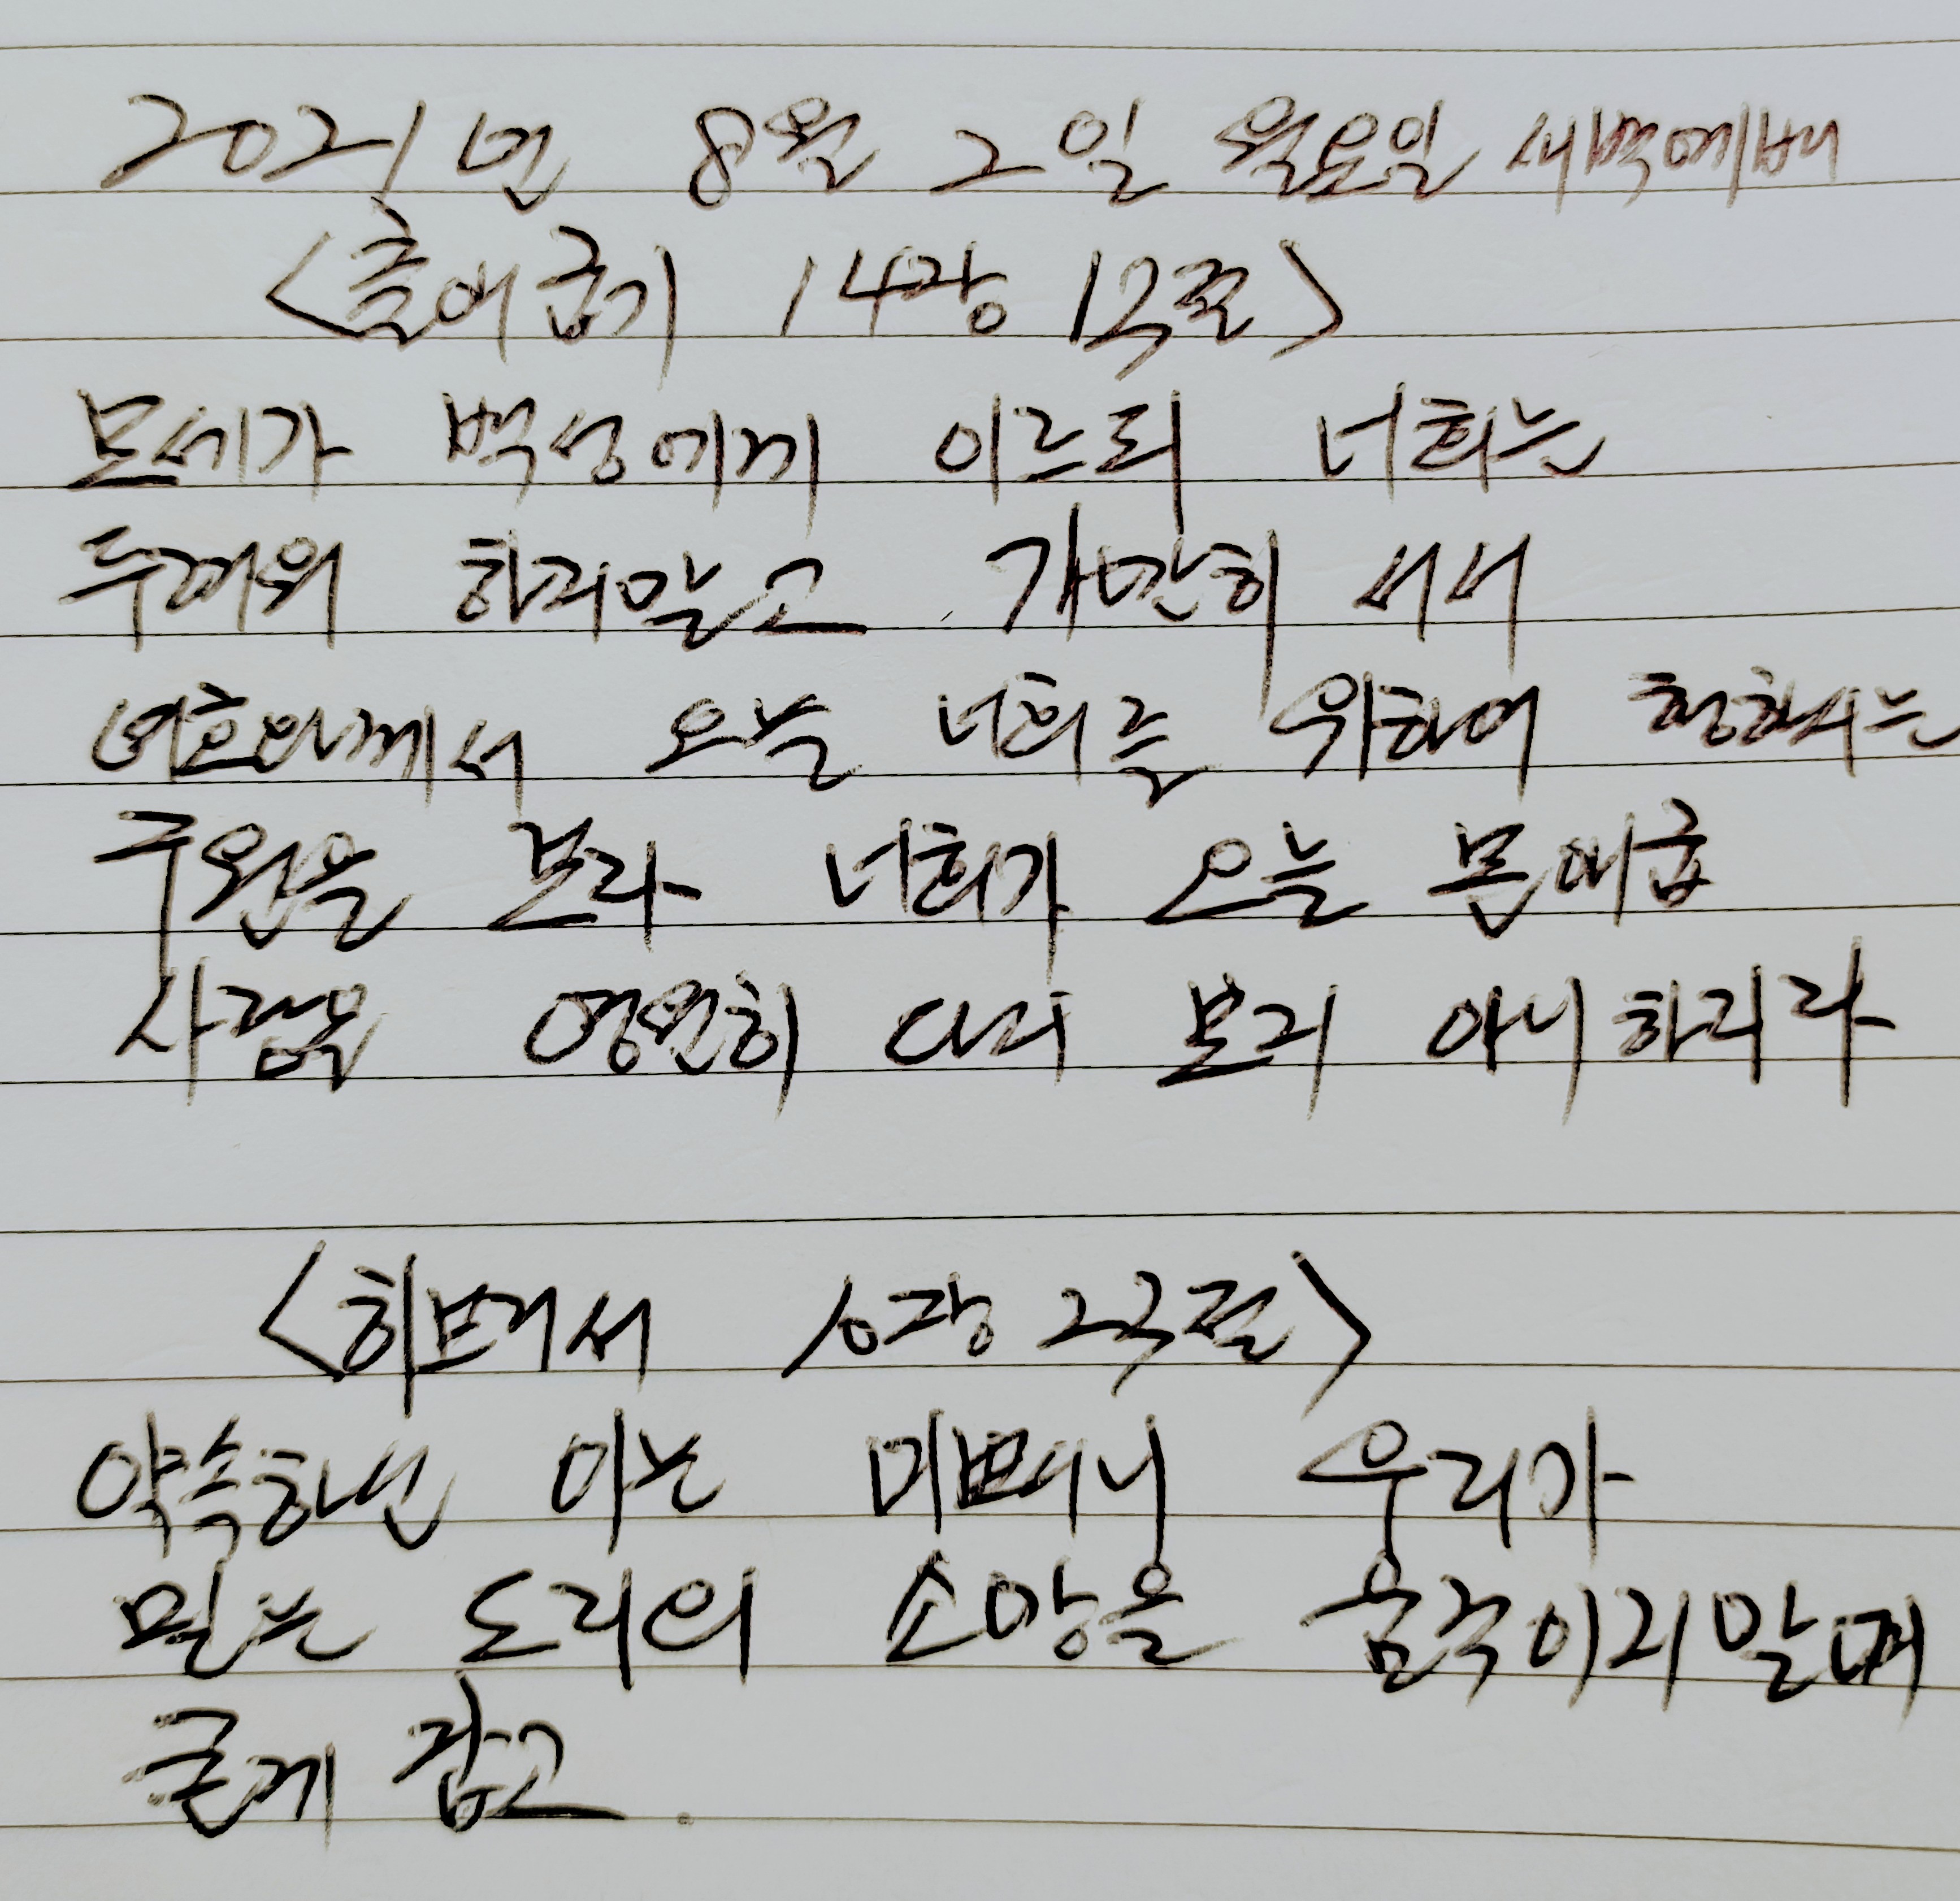 2021년 8월 2일 월요일 새벽예배
<출애굽기 14장 13절>
모세가 백성에게 이르되 너희는
두려워 하지말고 가만히 서서
여호와께서 오늘 너희를 위하여 행하시는
구원을 보라 너희가 오늘 본 애굽
사람을 영원히 다시 보지 아니하리라
<히브리서 10장 23절>
약속하신 이는 미쁘시니 우리가
믿는 도리의 소망을 움직이지말며
굳게 잡고.